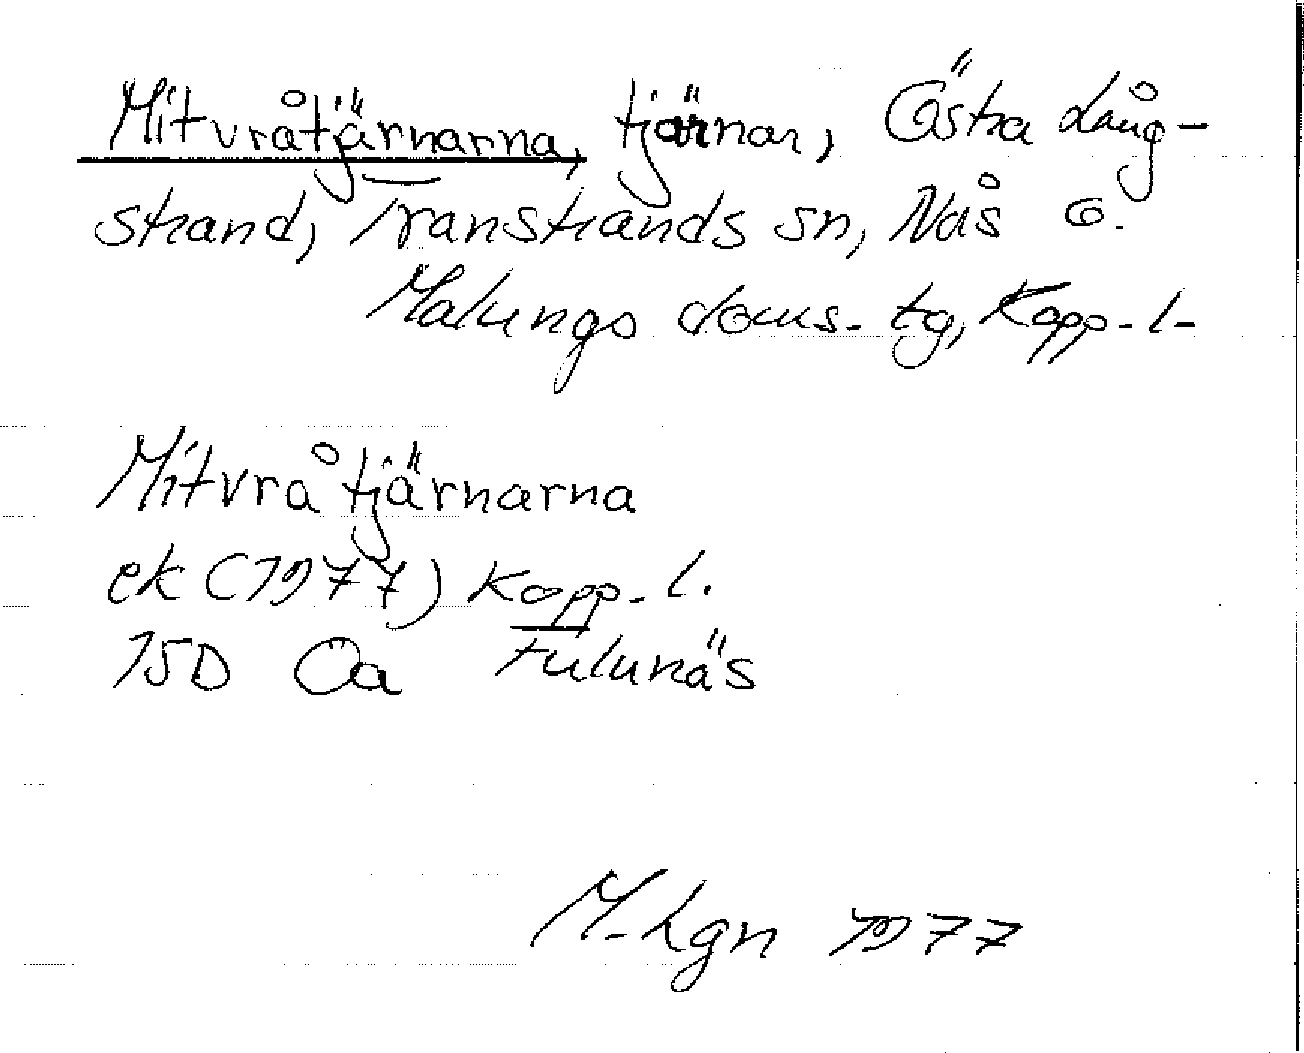 Mitvråtjärnarna, tjärnar, Östra Lång-
strand, Transtrands sn, Nås o.
Malungs doms. tg, Kopp. l.
Mitvråtjärnarna
ek (1977) Kopp. l.
15D Öa Fulunäs
M. Lgn 1977